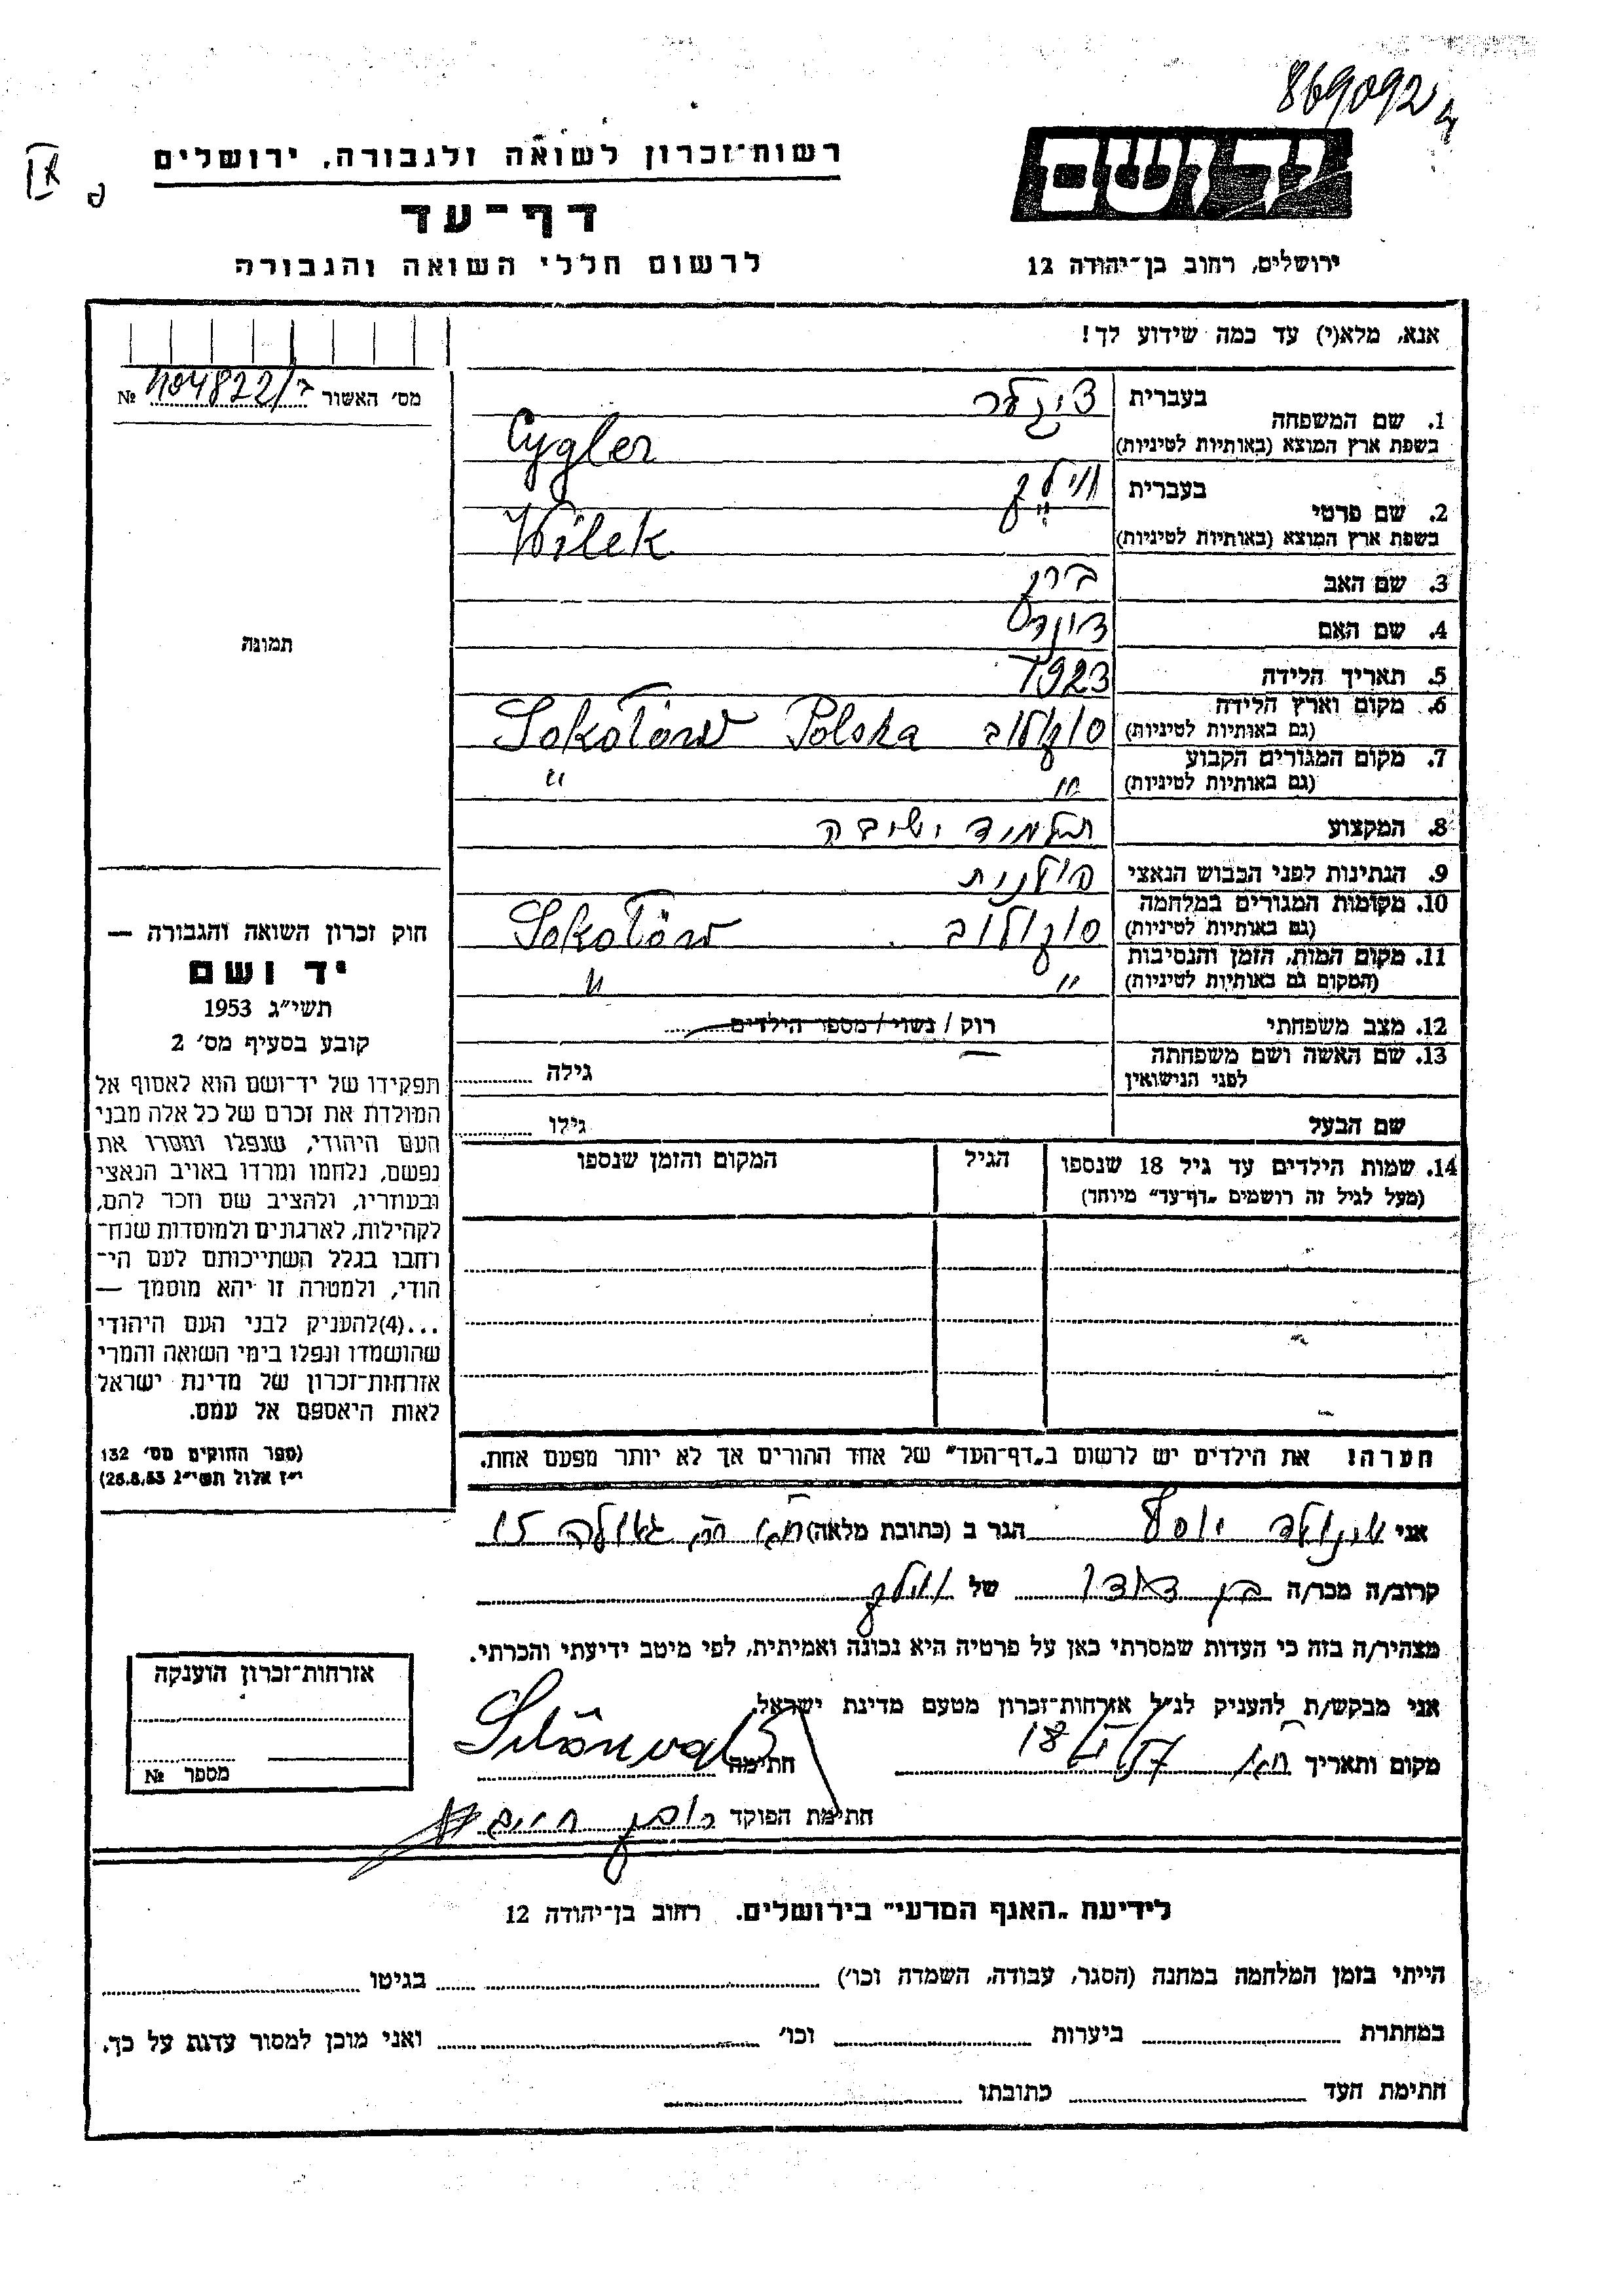 869092
רשות־זכרון לשואה ולגבורה, ירושלים
דף־עד
לרשום חללי השואה והגבורה
יד ושם
ירושלים, רחוב בן־יהודה 12
אנא, מלא(י) עד כמה שידוע לך!
מס׳ האשור №
1. שם המשפחה
בעברית ציגלר
בשפת ארץ המוצא (באותיות לטיניות) Cygler
2. שם פרטי
בעברית ווילק
בשפת ארץ המוצא (באותיות לטיניות) Wilek
3. שם האב
4. שם האם
5. תאריך הלידה 1923
6. מקום וארץ הלידה סוקולוב Sokołów Polska
(גם באותיות לטיניות)
7. מקום המגורים הקבוע " "
(גם באותיות לטיניות)
8. המקצוע תלמיד ישיבה
9. הנתינות לפני הכבוש הנאצי פולנית
10. מקומות המגורים במלחמה סוקולוב Sokołów
(גם באותיות לטיניות)
11. מקום המות, הזמן והנסיבות " "
(המקום גם באותיות לטיניות)
12. מצב משפחתי רוק / נשוי / מספר הילדים
13. שם האשה ושם משפחתה
לפני הנישואין גילה
שם הבעל גילו
14. שמות הילדים עד גיל 18 שנספו הגיל המקום והזמן שנספו
(מעל לגיל זה רושמים „דף־עד" מיוחד)
הערה! את הילדים יש לרשום ב„דף־העד" של אחד ההורים אך לא יותר מפעם אחת.
תמונה
חוק זכרון השואה והגבורה —
יד ושם
תשי״ג 1953
קובע בסעיף מס׳ 2
תפקידו של יד־ושם הוא לאסוף אל
המולדת את זכרם של כל אלה מבני
העם היהודי, שנפלו ומסרו את
נפשם, נלחמו ומרדו באויב הנאצי
ובעוזריו, ולהציב שם וזכר להם,
לקהילות, לארגונים ולמוסדות שנח־
רחבו בגלל השתייכותם לעם הי־
הודי, ולמטרה זו יהא מוסמך —
...(4)להעניק לבני העם היהודי
שהושמדו ונפלו בימי השואה והמרי
אזרחות־זכרון של מדינת ישראל
לאות היאספם אל עמם.
(ספר החוקים מס׳ 132
י״ז אלול תשי״ג 28.8.53)
אני יוסף הגר ב (כתובת מלאה) גאולה 15
קרוב/ה מכר/ה בן דודו של ווילק
מצהיר/ה בזה כי העדות שמסרתי כאן על פרטיה היא נכונה ואמיתית, לפי מיטב ידיעתי והכרתי.
אני מבקש/ת להעניק לנ״ל אזרחות־זכרון מטעם מדינת ישראל.
מקום ותאריך חתימה
חתימת הפוקד
אזרחות־זכרון הוענקה
מספר №
לידיעת „האגף המדעי" בירושלים. רחוב בן־יהודה 12
הייתי בזמן המלחמה במחנה (הסגר, עבודה, השמדה וכו׳) בגיטו
במחתרת ביערות וכו׳ ואני מוכן למסור עדות על כך.
חתימת העד כתובתו